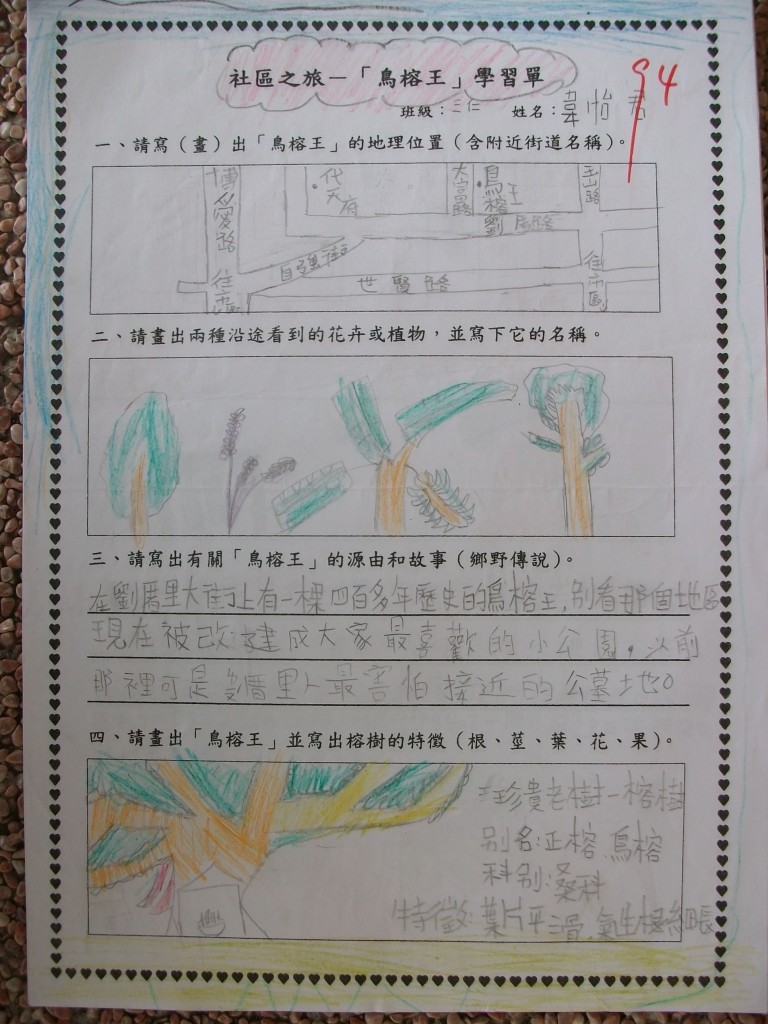 社區之旅－「鳥榕王」學習單
94
班級：三仁 姓名：韋怡君
一、請寫（畫）出「鳥榕王」的地理位置（含附近街道名稱）。
博愛路 代天府 大富路 鳥榕王 玉山路
劉厝路
自強街
往市區 世賢路 往市區
二、請畫出兩種沿途看到的花卉或植物，並寫下它的名稱。
三、請寫出有關「鳥榕王」的源由和故事（鄉野傳說）。
在劉厝里大街上有一棵四百多年歷史的鳥榕王，別看那個地區
現在被改建成大家最喜歡的小公園，以前
那裡可是劉厝里人最害怕接近的公墓地。
四、請畫出「鳥榕王」並寫出榕樹的特徵（根、莖、葉、花、果）。
珍貴老樹－榕樹
別名：正榕、鳥榕
科別：桑科
特徵：葉片平滑、氣生根細長